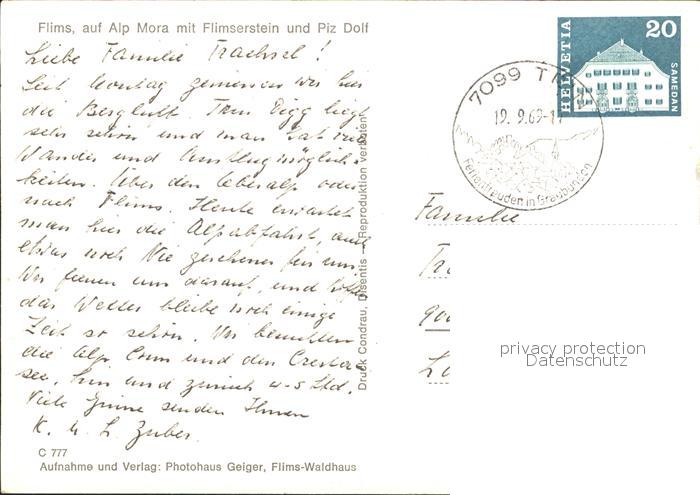 Flims, auf Alp Mora mit Flimserstein und Piz Dolf
Liebe Familie Trachsel!
Seit Montag geniessen wir hier
die Bergluft. Trun Digg liegt
sehr schön und man hat viel
Wander und Ausflugmöglich-
keiten. Über den Oberalp oder
nach Flims. Heute erwartet
man hier die Alpabfahrt, auch
etwas noch Nie gesehenes für uns.
Wir freuen uns darauf, und hoffe
das Wetter bleibe noch einige
Zeit so schön. Wir
die Alp und den Cresta-
see, hin und zurück 4-5 Std.
Viele Grüsse senden Ihnen
K. u. L. Zuber.
C 777
Aufnahme und Verlag: Photohaus Geiger, Flims-Waldhaus
Druck Condrau, Disentis — Reproduktion verboten
7099 T
19. 9.69-1
Ferienfreuden in Graubünden
HELVETIA
20
SAMEDAN
Familie
privacy protection
Datenschutz